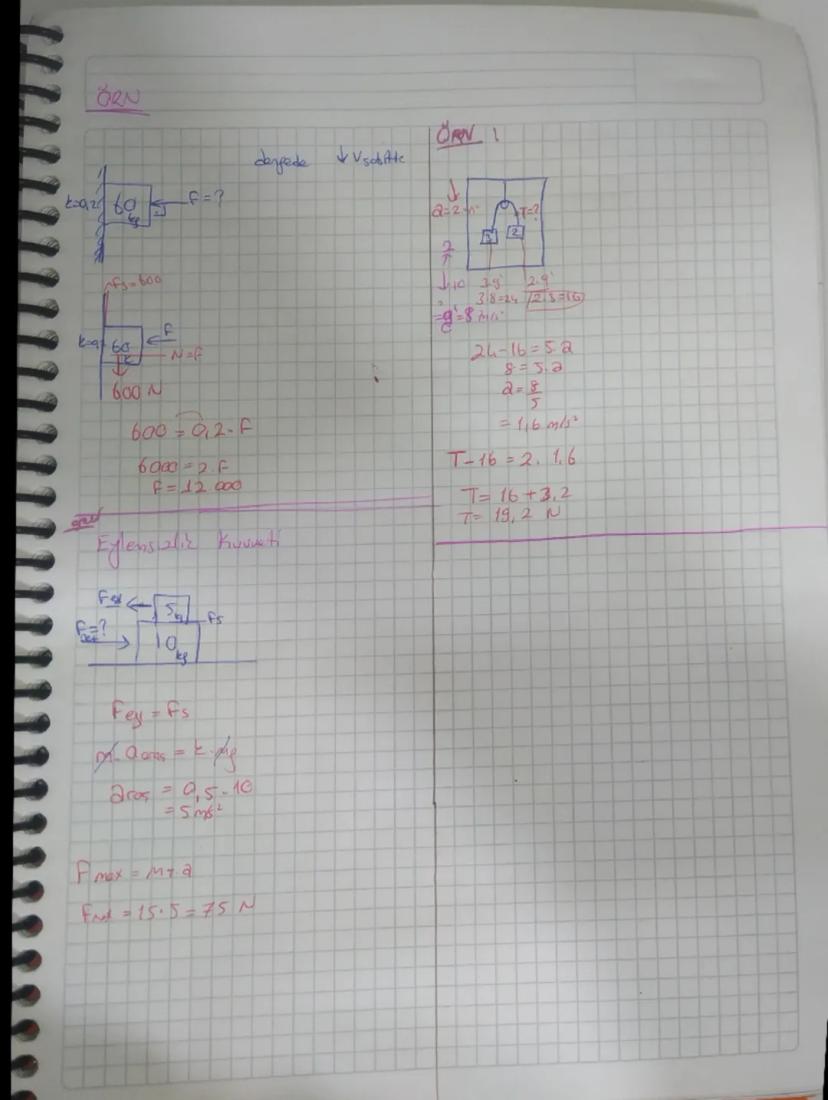 ÖRN
dengede ↓ Vsabitse
k=0,2
60 kg
F=?
fs=600
60
F
N=F
600 N
600 = 0,2 . F
6000 = 2.F
F = 12 000
Eylemsizlik Kuvveti
5 kg
fs
F=?
10 kg
Fey = Fs
m. aaras = k.mg
= 0,5 . 10
= 5 m/s²
F max = mT.a
= 15.5 = 75 N
ÖRN 1
a=2
T=?
3
2
10
3.g' 2.g'
3.8=24 2.8=16
g'=8 m/s²
24-16 = 5.a
8 = 5.a
a = 8/5
= 1,6 m/s²
T-16 = 2. 1,6
T = 16 + 3,2
T = 19,2 N